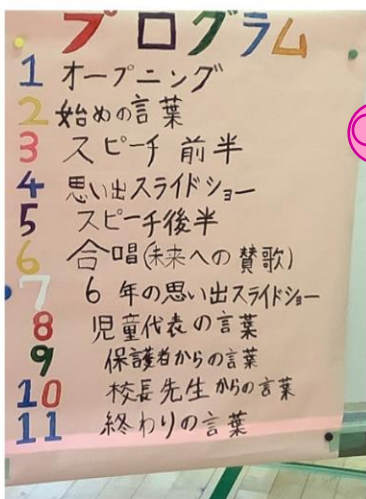 プログラム
1 オープニング
2 始めの言葉
3 スピーチ 前半
4 思い出スライドショー
5 スピーチ後半
6 合唱(未来への賛歌)
7 6年の思い出スライドショー
8 児童代表の言葉
9 保護者からの言葉
10 校長先生からの言葉
11 終わりの言葉